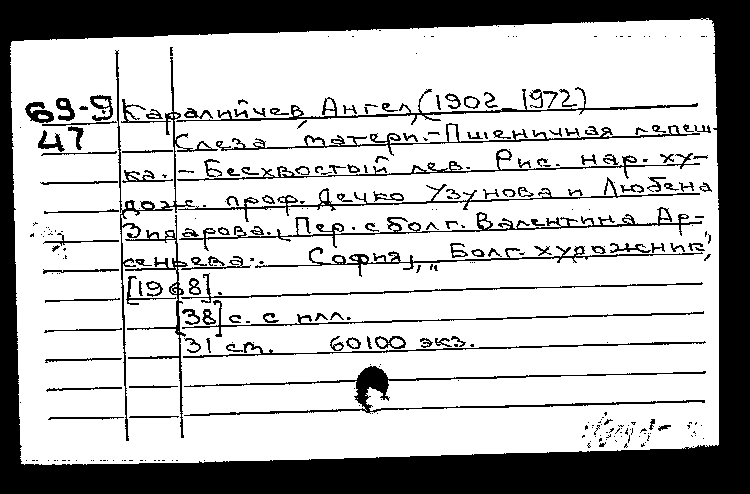 69-9 Каралийчев, Ангел, (1902-1972)
47 Слеза матери.-Пшеничная лепеш-
ка. - Бесхвостый лев. Рис. нар. ху-
дож. проф. Дечко Узунова и Любена
Зидарова., Пер. с болг. Валентина Ар-
сеньева.. София, „Болг. художник",
[1968].
[38] с. с илл.
31 см. 60100 экз.